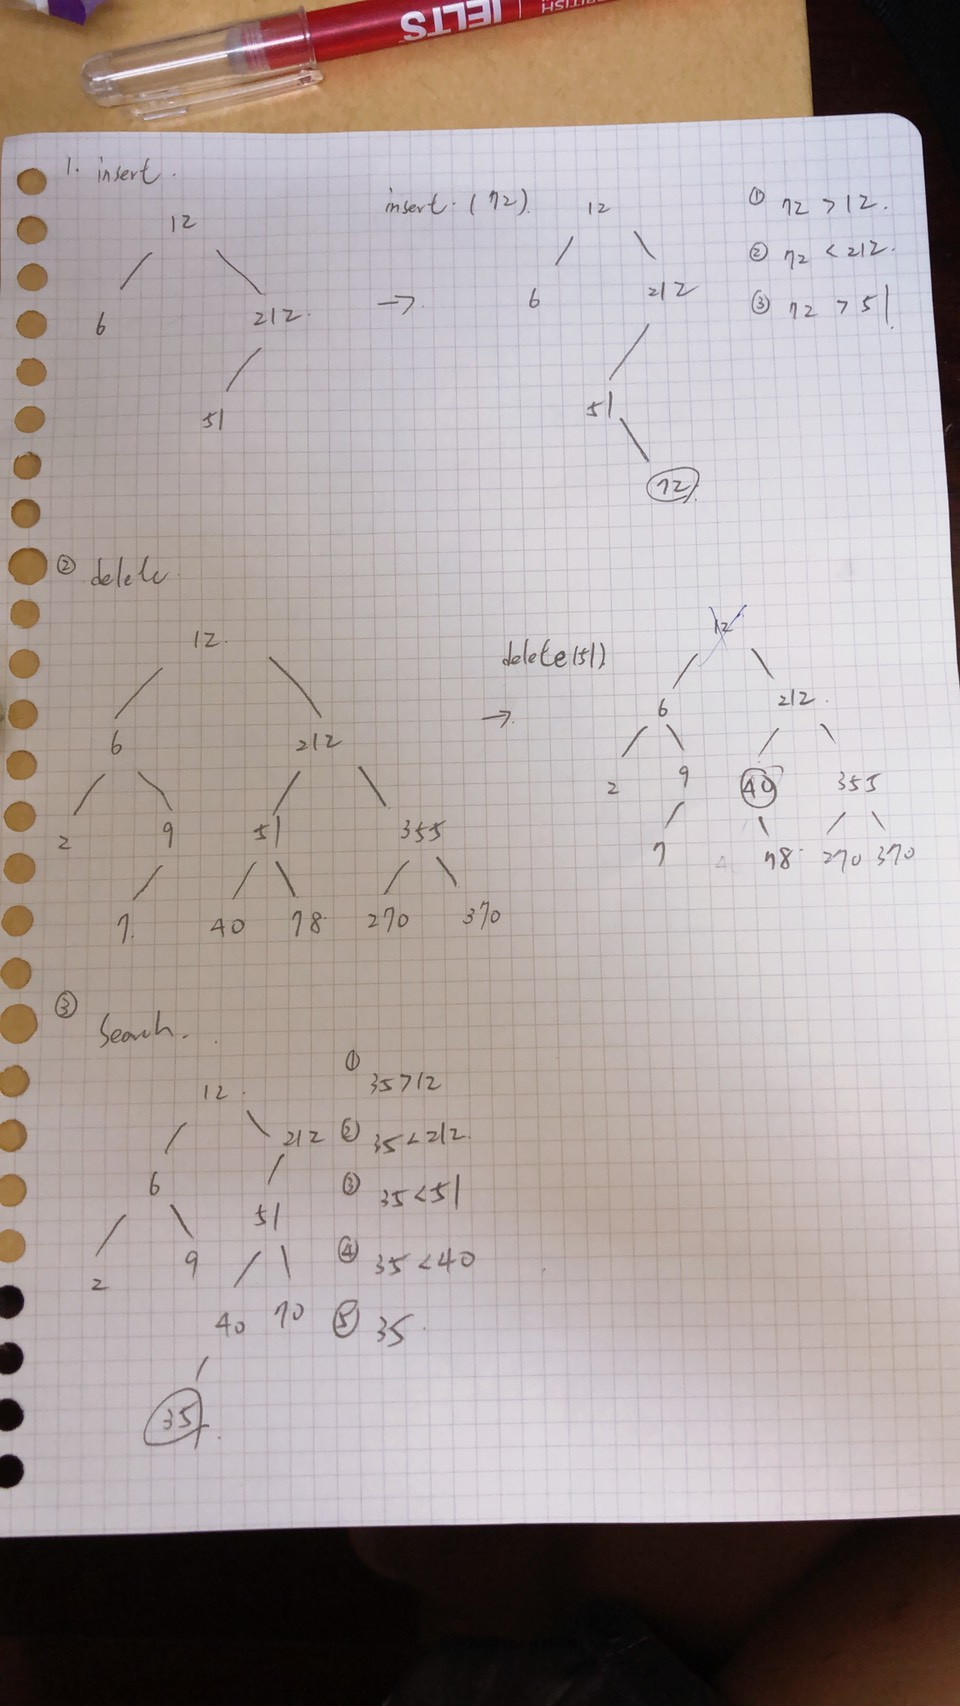 BRITISH
IELTS
1. insert.
12
6 212.
51
insert. (72).
→
12
6 212
51
72
① 72 > 12.
② 72 < 212.
③ 72 > 51
② delete
12.
6 212
2 9 51 355
7. 40 78 270 370
delete(51)
→
12
6 212.
2 9 40 355
7 78 270 370
③
Search.
12.
6 212
2 9 51
40 70
35
① 35>12
② 35<212.
③ 35<51
④ 35<40
⑤ 35.